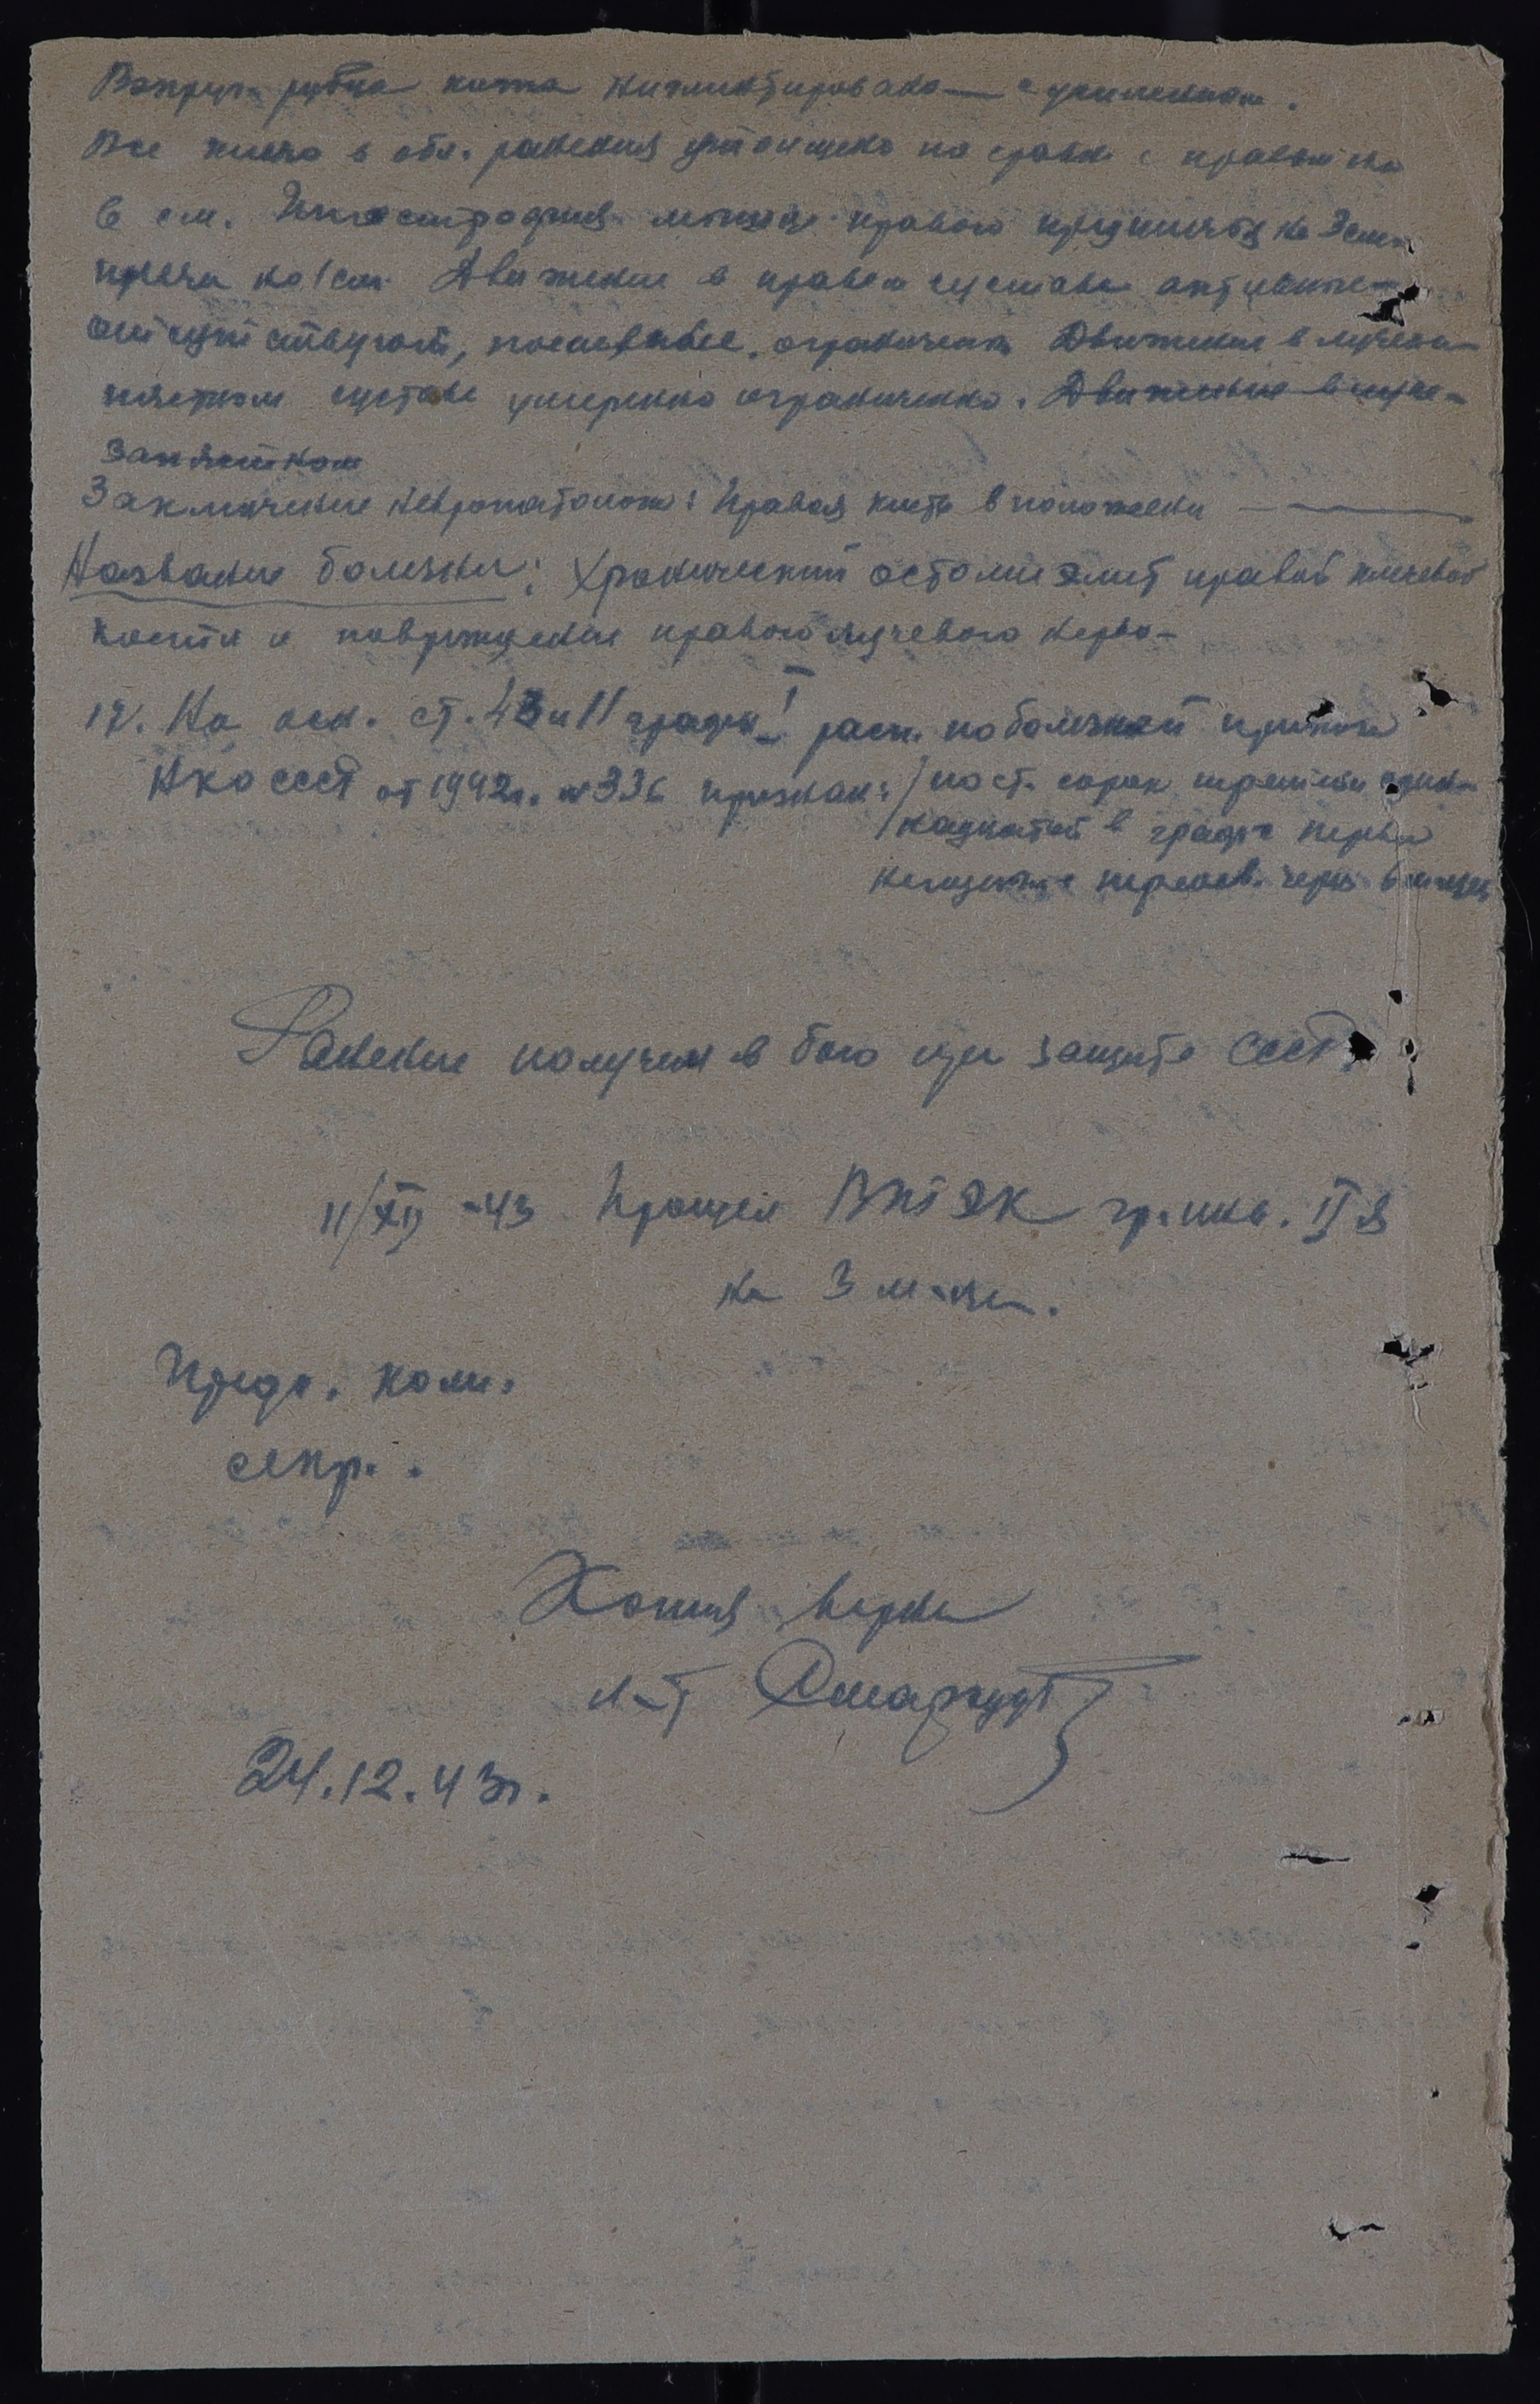 Вокруг рубца кожа пигментирована с уплотнением.
Все плечо в обл. ранения утолщено по сравн. с правым на
6 см. Гипоатрофия мышц правого предплечья на 3 см.
плеча на 1 см. Движение в правом суставе активные
отсутствуют, пассивные ограничены Движения в лучеза-
пястном суставе умеренно ограничено. Движение в луче-
запястном
Заключение невропатолога: Правая кисть в положении
Название болезни: Хронический остомиэлит правой плечевой
кости и повреждение правого лучевого нерва
12. На осн. ст. 43 и 11 графы I расп. по болезней приказа
НКО СССР от 1942г. № 336 признан: / по ст. сорок третьей один-
надцатой в графе первой
негоден с переосв. через 6 месяцев
Ранение получил в бою при защите СССР.
11/XII -43 Прошел ВТЭК гр. инв. II я
на 3 м-ца.
Предс. ком.
секр.
Копия верна
л-т
24.12.43г.